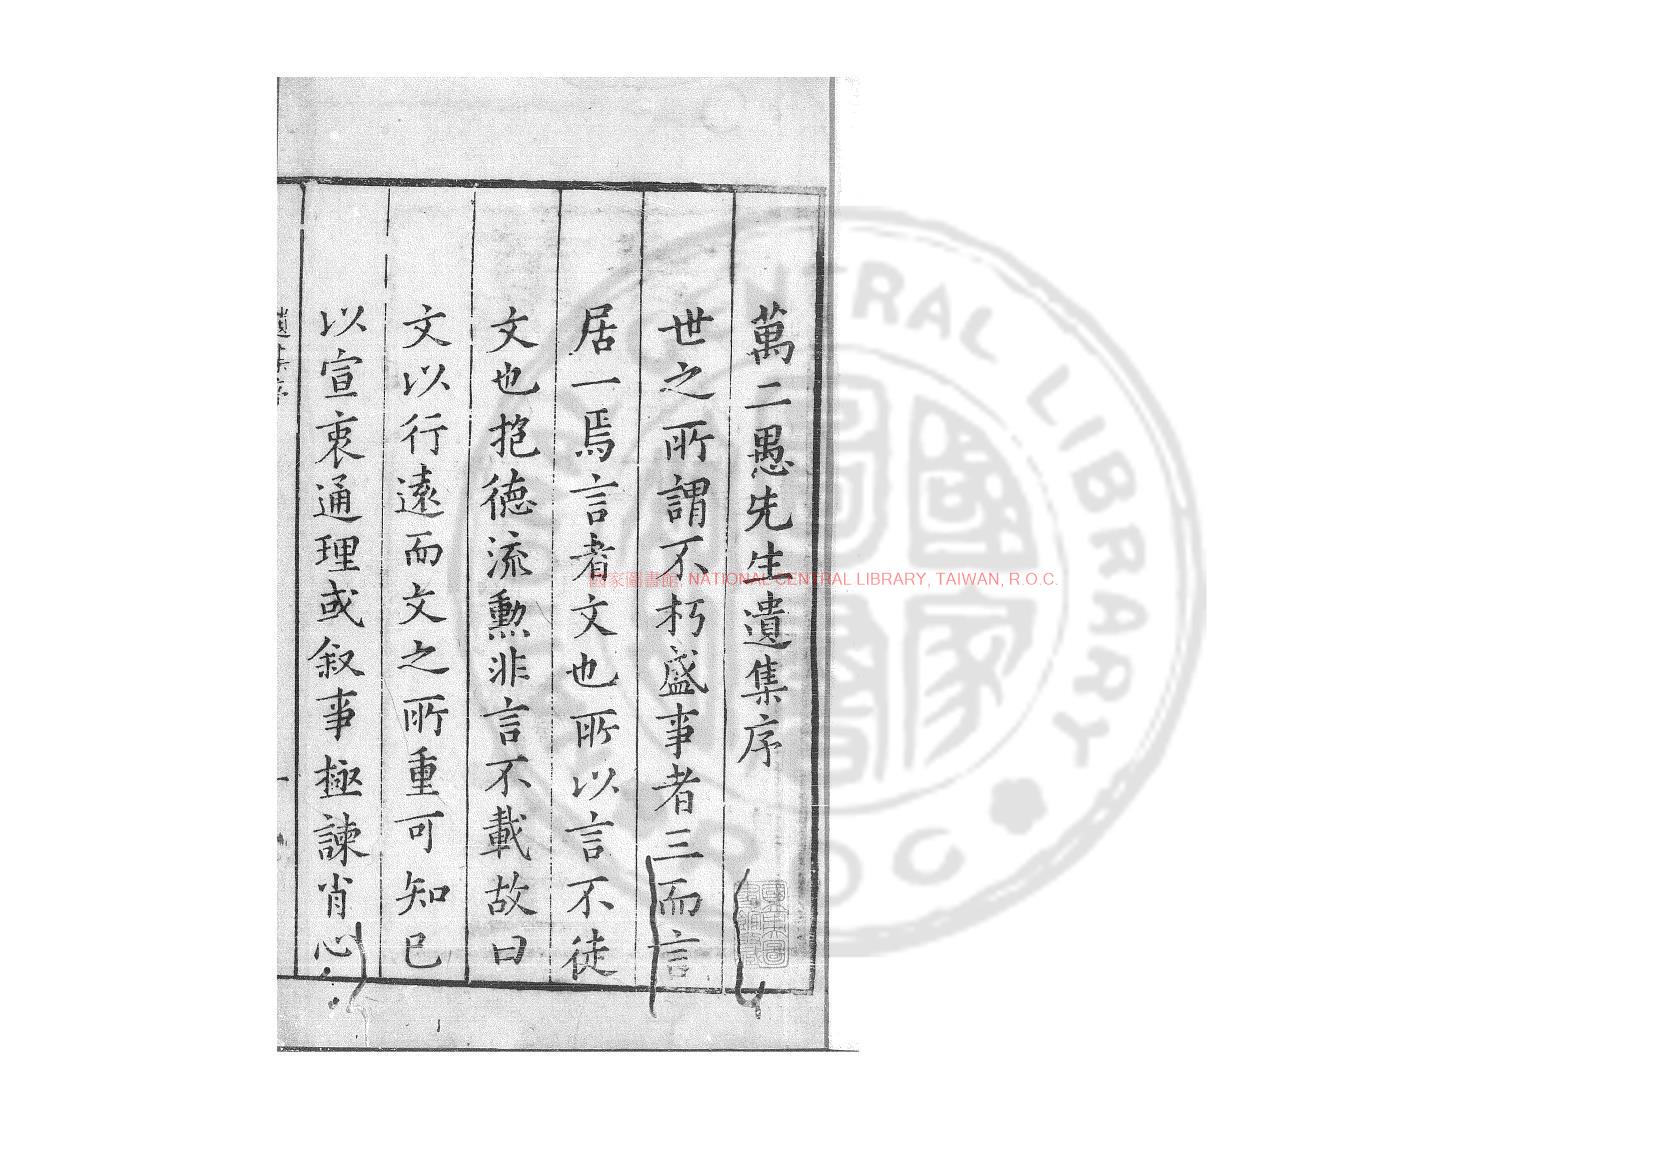 萬二愚先生遺集序
世之所謂不朽盛事者三而言
居一焉言者文也所以言不徒
文也抱徳流勲非言不載故曰
文以行遠而文之所重可知已
以宣衷通理或叙事極諫肖心
遺集序
一
國家圖書館, NATIONAL CENTRAL LIBRARY, TAIWAN, R.O.C.
國家圖書館藏